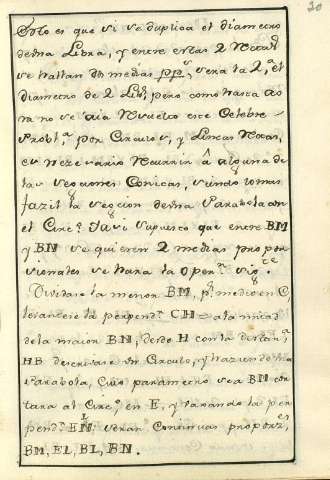 20
Esto es que si se duplica el diametro
de una Libra, y entre estas 2 Rectas
se hallan dos medias pp.s, sera la 2.a, el
diametro de 2 Lib.s, pero como hasta ao
ra no se aia Resuelto este Celebre
Probl.a, por Circulos, y Lineas Rectas,
es nezesario Recurrir â alguna de
las secciones Conicas, siendo lo mas
fazil la seccion de una Parabola con
el Circ.o Esto supuesto que entre BM
y BN se quieren 2 medias propor
sionales se hara la oper.n sig.te
Dividase la menor BM, p.r medio en C,
levantese la perpend.r CH = a la mitad
de la maior BN, desde H con la distan.a
HB descrivase un Circulo, y haziendo una
Parabola, Cuio parametro sea BM cor
tara al Circ.o en E, y tirando la per
pend.r EL seran Continuas proporz.es
BM, EL, BL, BN.